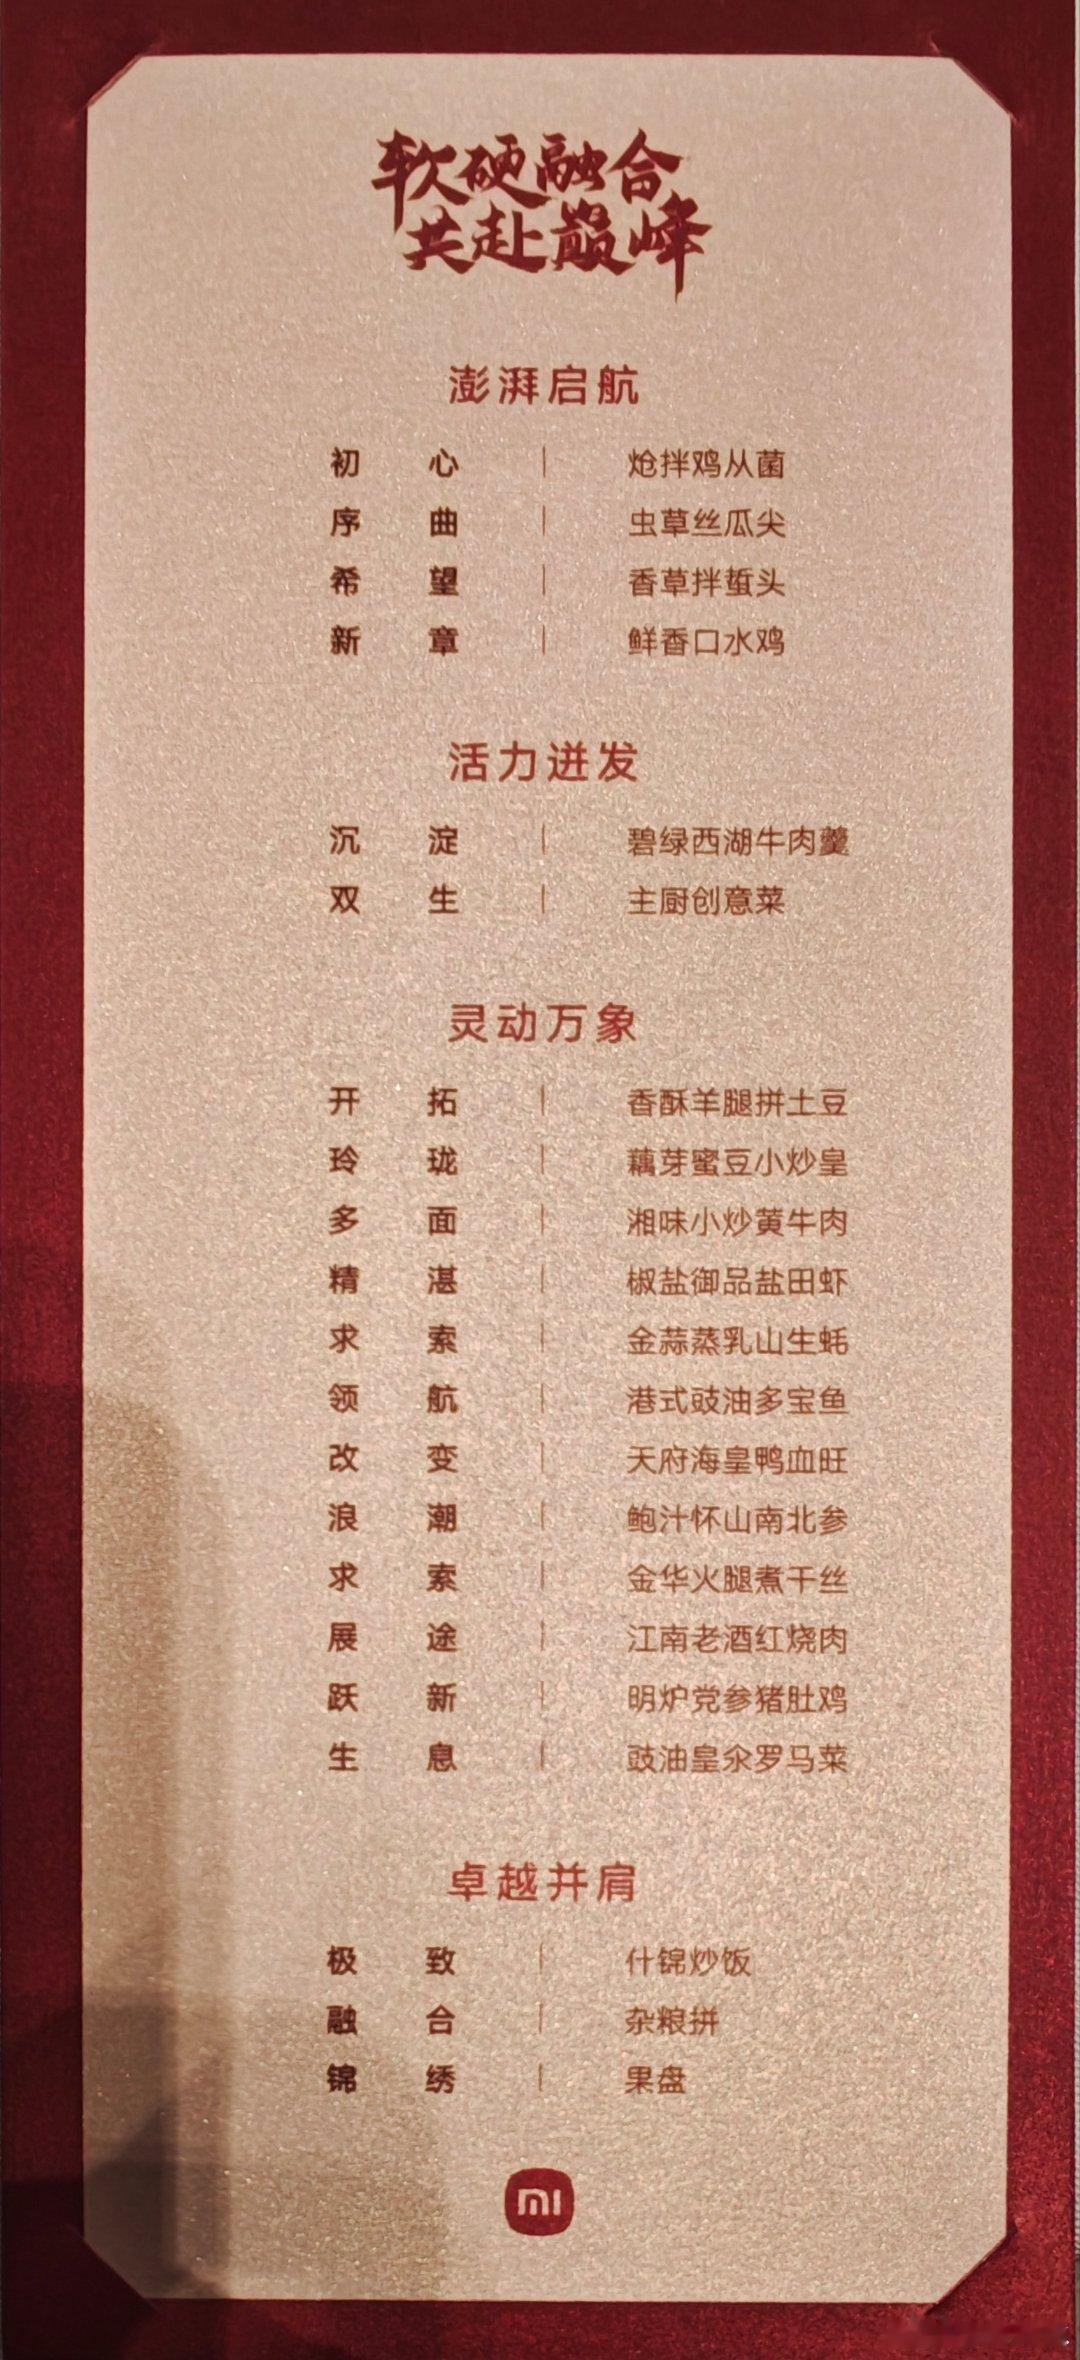 软硬融合
共赴巅峰
澎湃启航
初心 | 炝拌鸡从菌
序曲 | 虫草丝瓜尖
希望 | 香草拌蜇头
新章 | 鲜香口水鸡
活力迸发
沉淀 | 碧绿西湖牛肉羹
双生 | 主厨创意菜
灵动万象
开拓 | 香酥羊腿拼土豆
玲珑 | 藕芽蜜豆小炒皇
多面 | 湘味小炒黄牛肉
精湛 | 椒盐御品盐田虾
求索 | 金蒜蒸乳山生蚝
领航 | 港式豉油多宝鱼
改变 | 天府海皇鸭血旺
浪潮 | 鲍汁怀山南北参
求索 | 金华火腿煮干丝
展途 | 江南老酒红烧肉
跃新 | 明炉党参猪肚鸡
生息 | 豉油皇汆罗马菜
卓越并肩
极致 | 什锦炒饭
融合 | 杂粮拼
锦绣 | 果盘
mi